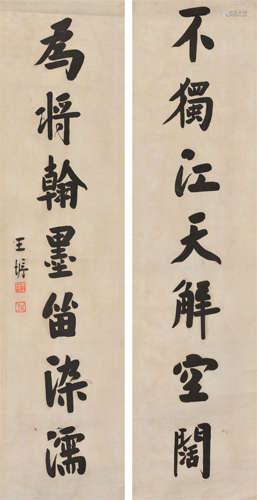 不獨江天解空闊
為將翰墨留染濡
王堮